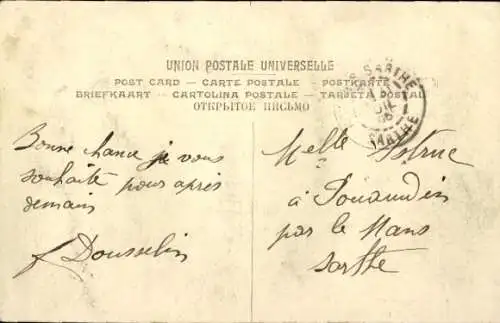 UNION POSTALE UNIVERSELLE
POST CARD — CARTE POSTALE — POSTKARTE
BRIEFKAART — CARTOLINA POSTALE — TARJETA POSTAL
ОТКРЫТОЕ ПИСЬМО
SARTHE
SARTHE
Bonne chance je vous
souhaite pour après
demain
Dousselin
Melle Astruc
à
par le Mans
Sarthe